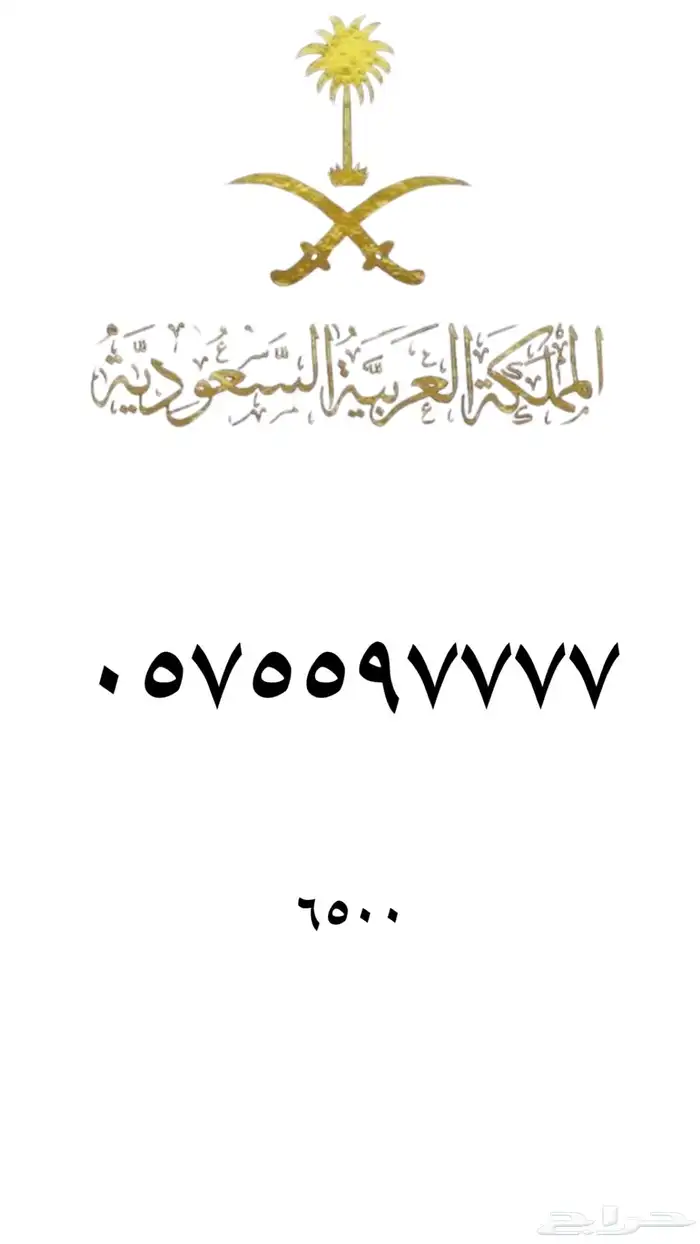 المملكة العربية السعودية
٠٥٧٥٥٩٧٧٧٧
٦٥٠٠
حراج